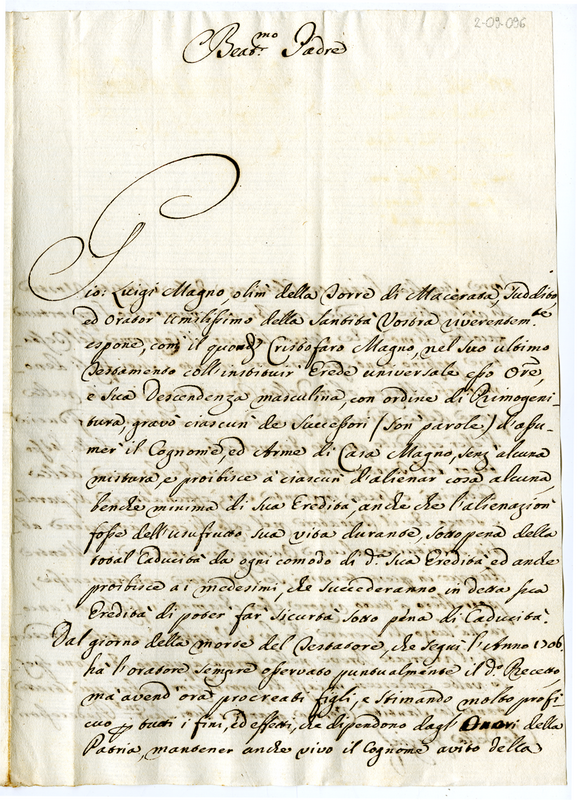 2-09-096
Beat.mo Padre
Gio: Luigi Magno, olim della Torre di Macerata, Suddito
ed Orator umilissimo della Santità Vostra riverentem.te
espone, com il quond. Cristofaro Magno, nel suo ultimo
Testamento coll'instituir Erede universale esso Ore,
e sua Descendenza masculina, con ordine di Primogeni-
tura, gravò ciascun de Successori (son parole) d'assu-
mer il Cognome, ed Arme di Casa Magno, senz'alcuna
mistura, e proibisce à ciascun d'alienar cosa alcuna,
benche minima di sua Eredità, anche che l'alienazion
fosse dell'usufrutto sua vita durante, sotto pena della
total Caducità da ogni comodo di d.a sua Eredità ed anche
proibisce ai medesimi, che succederanno in detta sua
Eredità di poter far sicurtà sotto pena di Caducità.
Dal giorno della morte del Testatore, che seguì l'Anno 1706.
hà l'oratore sempre osservato puntualmente il d.o Precetto
mà avend'ora procreati figli, e stimando molto profi-
cuo p tutti i fini, ed effetti, che dipendono dagl'Onori della
Patria, mantener anche vivo il Cognome avito della